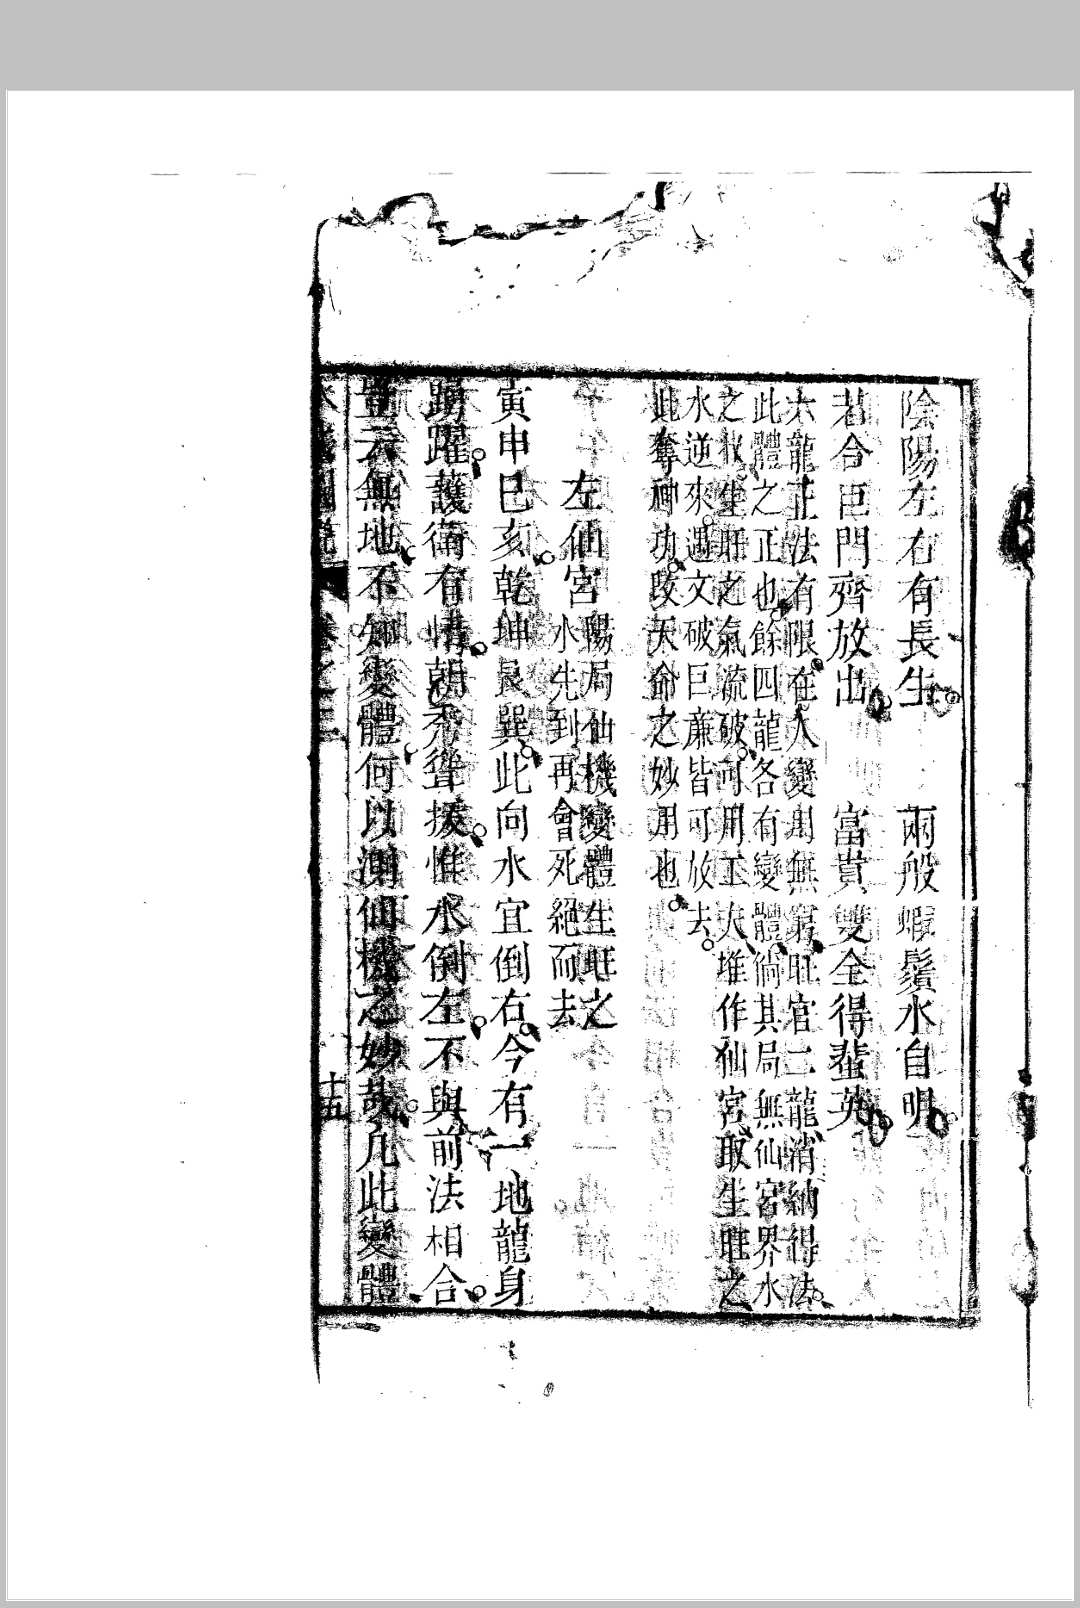 陰陽左右有長生　兩般蝦鬚水自明
若合臣門齊放出　富貴雙全得蜚英
六龍正法有限在人變用無窮旺官二龍消納得法
此體之正也餘四龍各有變體倘其局無仙宮界水
之狀生旺之氣流破可用工夫堆作仙宮取生旺之
水逆來遇文破巨廉皆可放去
此奪神功改天命之妙用也
左仙宮
陽局仙機變體生旺之
水先到再會死絕而去
寅申巳亥乾坤艮巽此向水宜倒右今有一地龍身
踴躍護衛有情朝秀聳援惟水倒左不與前法相合
豈云無地不知變體何以測仙機之妙哉凡此變體
卷之三
十五